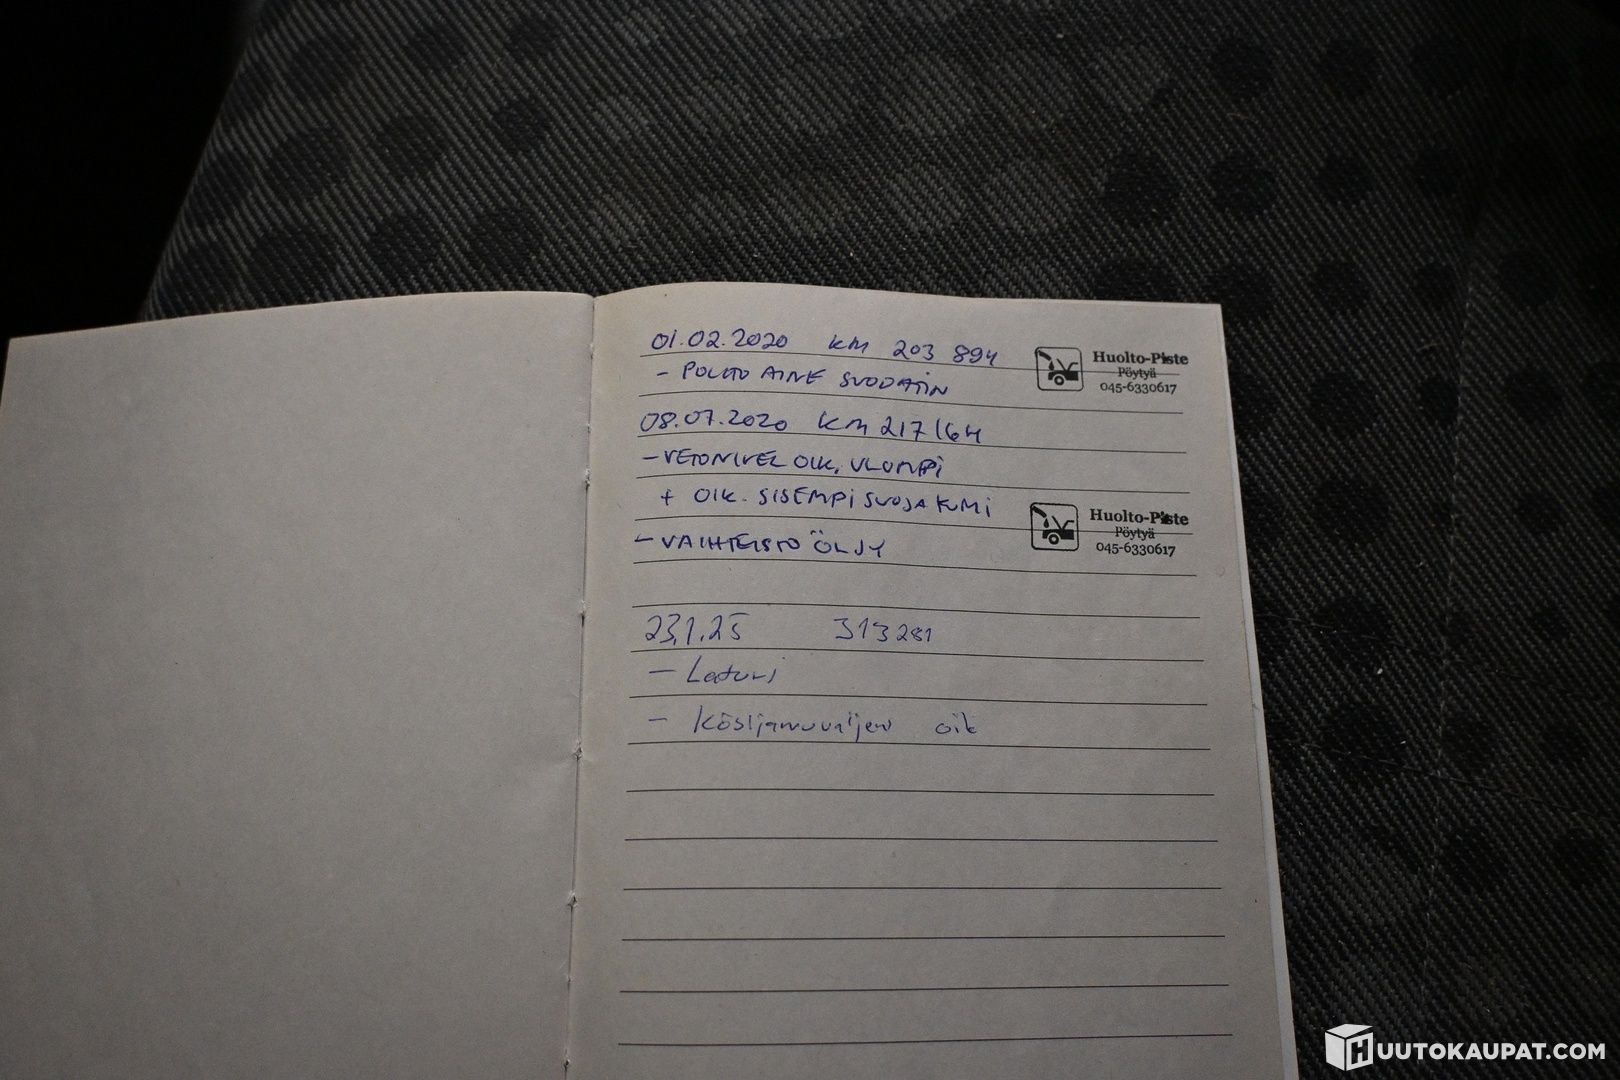 01.02.2020 KM 203 894
- POLTTO AINE SUODATIN
Huolto-Piste
Pöytyä
045-6330617
08.07.2020 KM 217164
- VETONIVEL OIK. ULOMPI
+ OIK. SISEMPI SUOJA KUMI
- VAIHTEISTO ÖLJY
Huolto-Piste
Pöytyä
045-6330617
23.1.25 313281
- Laturi
- Käsijarruvaijeri oik
HUUTOKAUPAT.COM